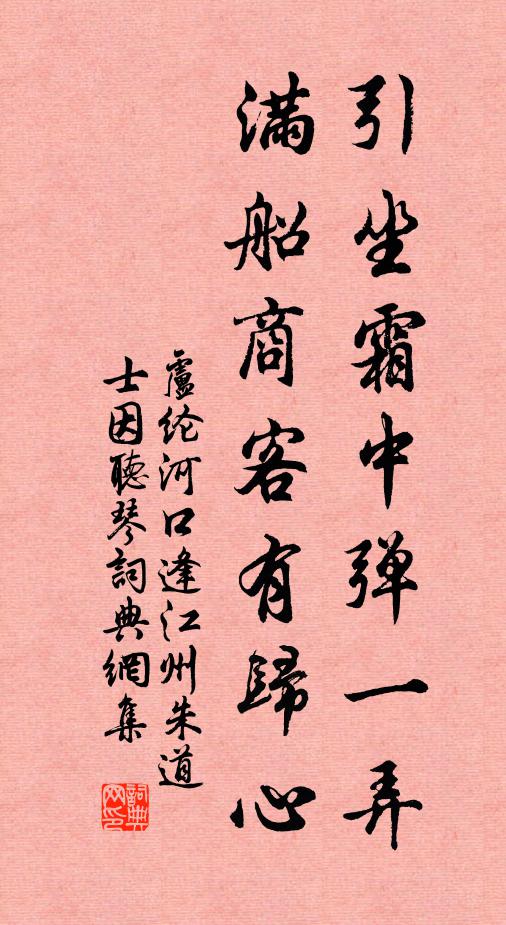 引坐霜中弹一弄
满船商客有歸心
盧纶河口逢江州朱道
士因聽琴詞典網集
詞典
网印